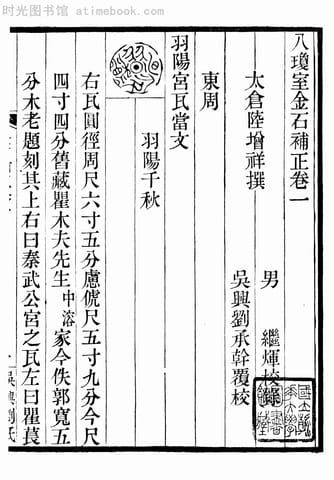 时光图书馆 www.atimebook.com
八瓊室金石補正卷一
太倉陸增祥撰
男 繼煇校錄
吳興劉承幹覆校
東周
羽陽宮瓦當文
羽陽千秋
右瓦圓徑周尺六寸五分慮俿尺五寸九分今尺
四寸四分舊藏瞿木夫先生中溶家今佚郭寬五
分木老題刻其上右曰秦武公宮之瓦左曰瞿萇
吳興劉氏